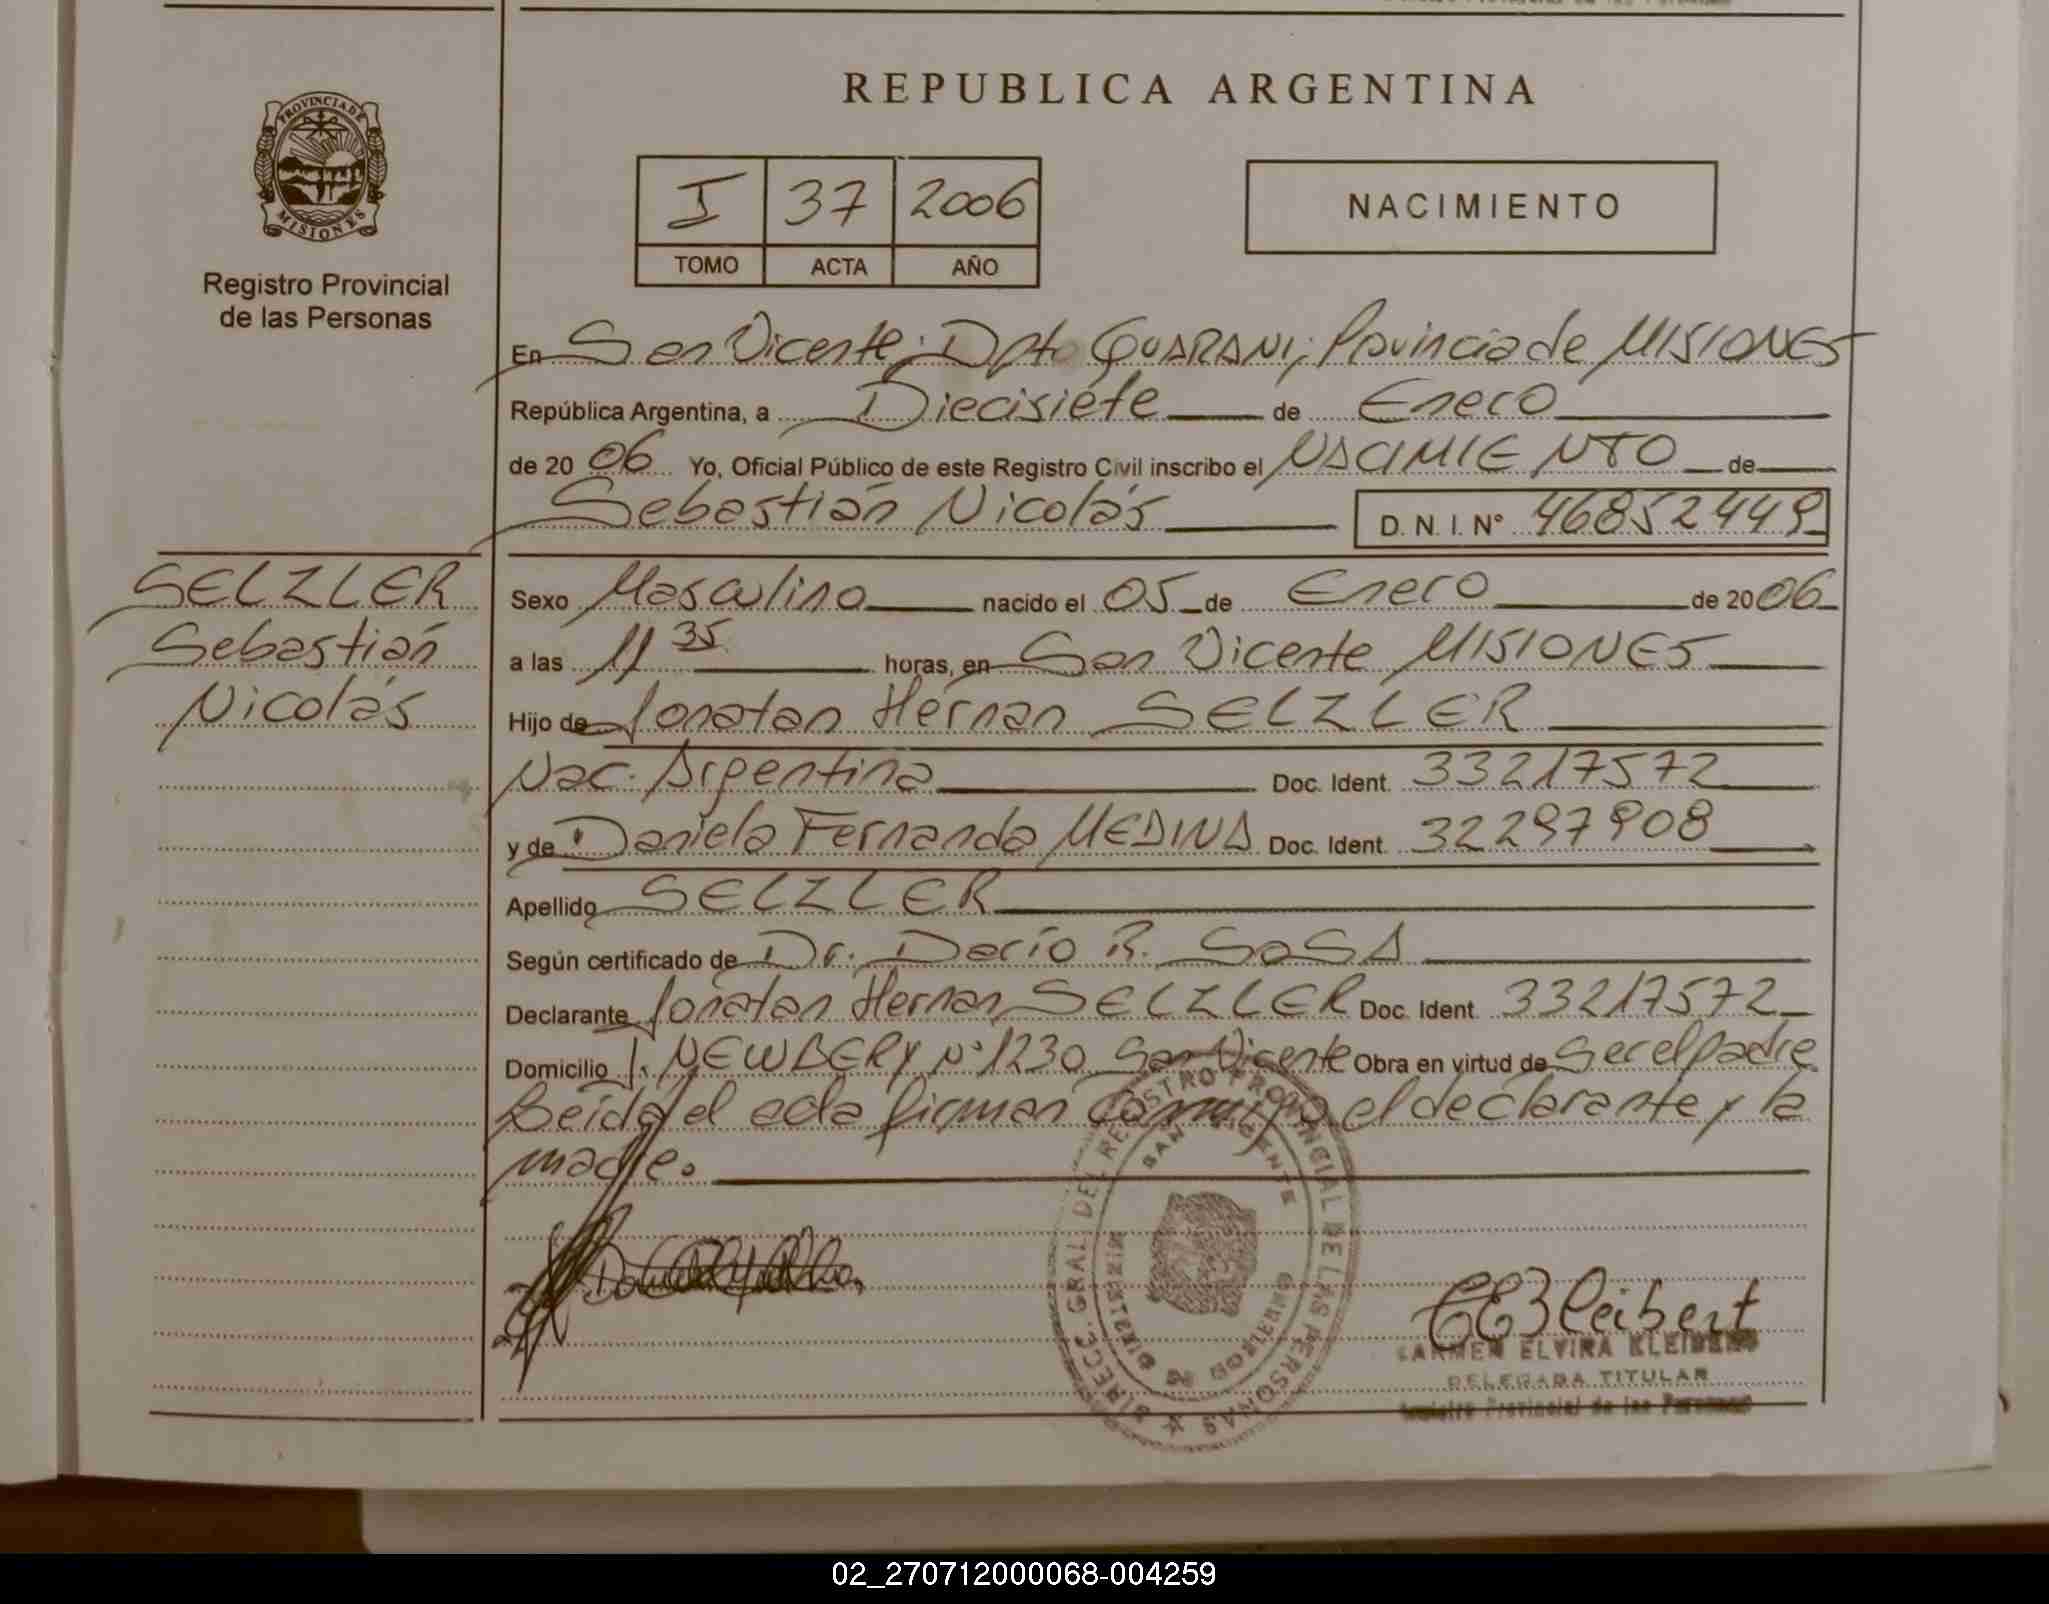 REPUBLICA ARGENTINA
PROVINCIA DE
MISIONES
Registro Provincial
de las Personas
I 37 2006
TOMO ACTA AÑO
NACIMIENTO
En San Vicente; Dpto GUARANI; Provincia de MISIONES
República Argentina, a Diecisiete de Enero
de 20 06 Yo, Oficial Público de este Registro Civil inscribo el NACIMIENTO de
Sebastián Nicolás D. N. I. N° 46852449
SELZLER
Sebastián
Nicolás
Sexo Masculino nacido el 05 de Enero de 20 06
a las 11 35 horas, en San Vicente MISIONES
Hijo de Jonatan Hernan SELZLER
Nac. Argentina Doc. Ident. 33217572
y de Daniela Fernanda MEDINA Doc. Ident. 32297908
Apellido SELZLER
Según certificado de Dr. Darío R. SOSA
Declarante Jonatan Hernan SELZLER Doc. Ident. 33217572
Domicilio J. NEWBERY N° 1230 San Vicente Obra en virtud de Ser el padre
Leída el acta firman conmigo el declarante y la
madre.
DIRECC. GRAL. DEL REGISTRO PROVINCIAL DE LAS PERSONAS
SAN VICENTE
MISIONES
CARMEN ELVIRA KLEIBERT
DELEGADA TITULAR
Registro Provincial de las Personas
02_270712000068-004259